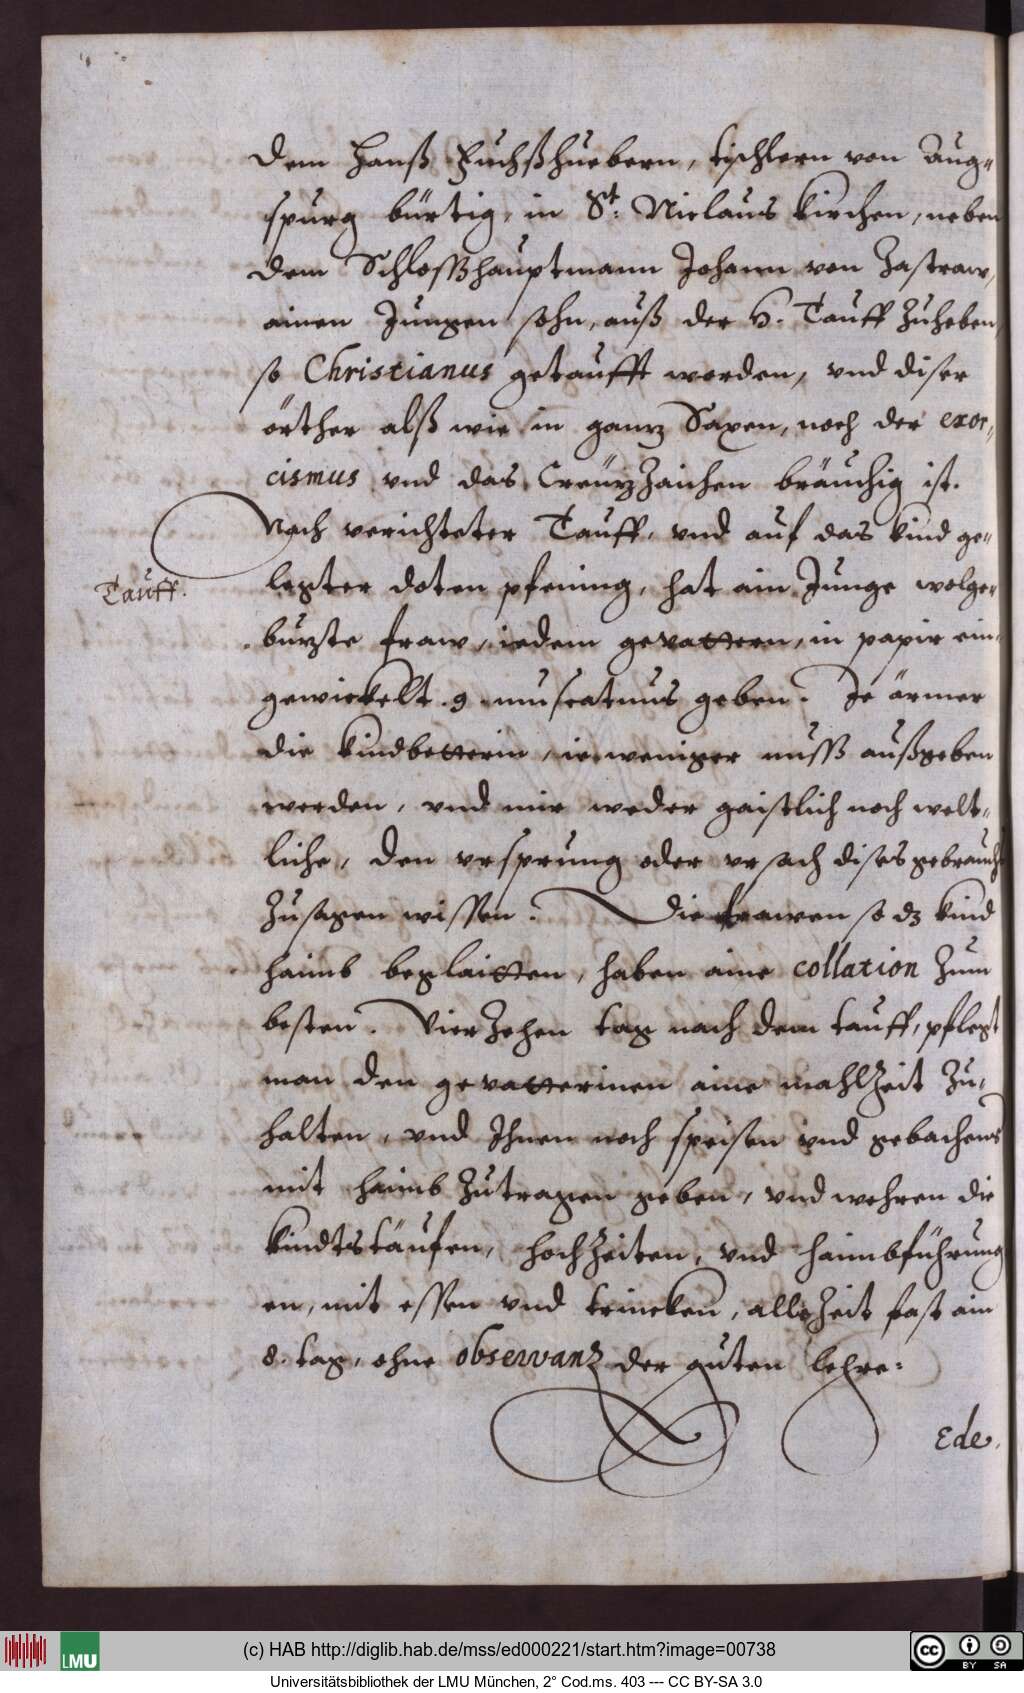 dem Hanß Fuchßhuebern, tischlern von Aug⸗
spurg bürtig, in St: Niclaus kirchen, neben
dem Schlosßhauptmann Johann von Zastraw,
ainen Jungen sohn, auß der H. Tauff zuheben,
so Christianus getaufft worden, vnd diser
örther alß wie in ganz Saxen, noch der exor⸗
cismus vnd das Creüzzaichen bräuchig ist.
Nach verichteter Tauff, vnd auf das kind ge⸗
Tauff.
legter doten pfening, hat ain Junge wolge⸗
buzte fraw, iedem gevattern, in papir ein⸗
gewickellt .9. muscatnus geben. Je ärmer
die kindbetterin, ie weniger nusß außgeben
werden, vnd mir weder gaistlich noch welt⸗
liche, den vrsprung oder vrsach dises gebrauchs
zusagen wissen. Die frawen so dz kind
haimb beglaitten, haben aine collation zum
besten. Vierzehen tag nach dem tauff, pflegt
man den gevatterinen aine mahlzeit zu⸗
halten, vnd Ihnen noch speisen vnd gebachens
mit haimb zutragen geben, vnd wehren die
kindtstäufen, hochzeiten, vnd haimbführung
en, mit essen vnd trincken, allezeit fast ain
8. tag, ohne observanz der guten lehre:
Ede,
LMU
(c) HAB http://diglib.hab.de/mss/ed000221/start.htm?image=00738
cc BY SA
Universitätsbibliothek der LMU München, 2° Cod.ms. 403 --- CC BY-SA 3.0